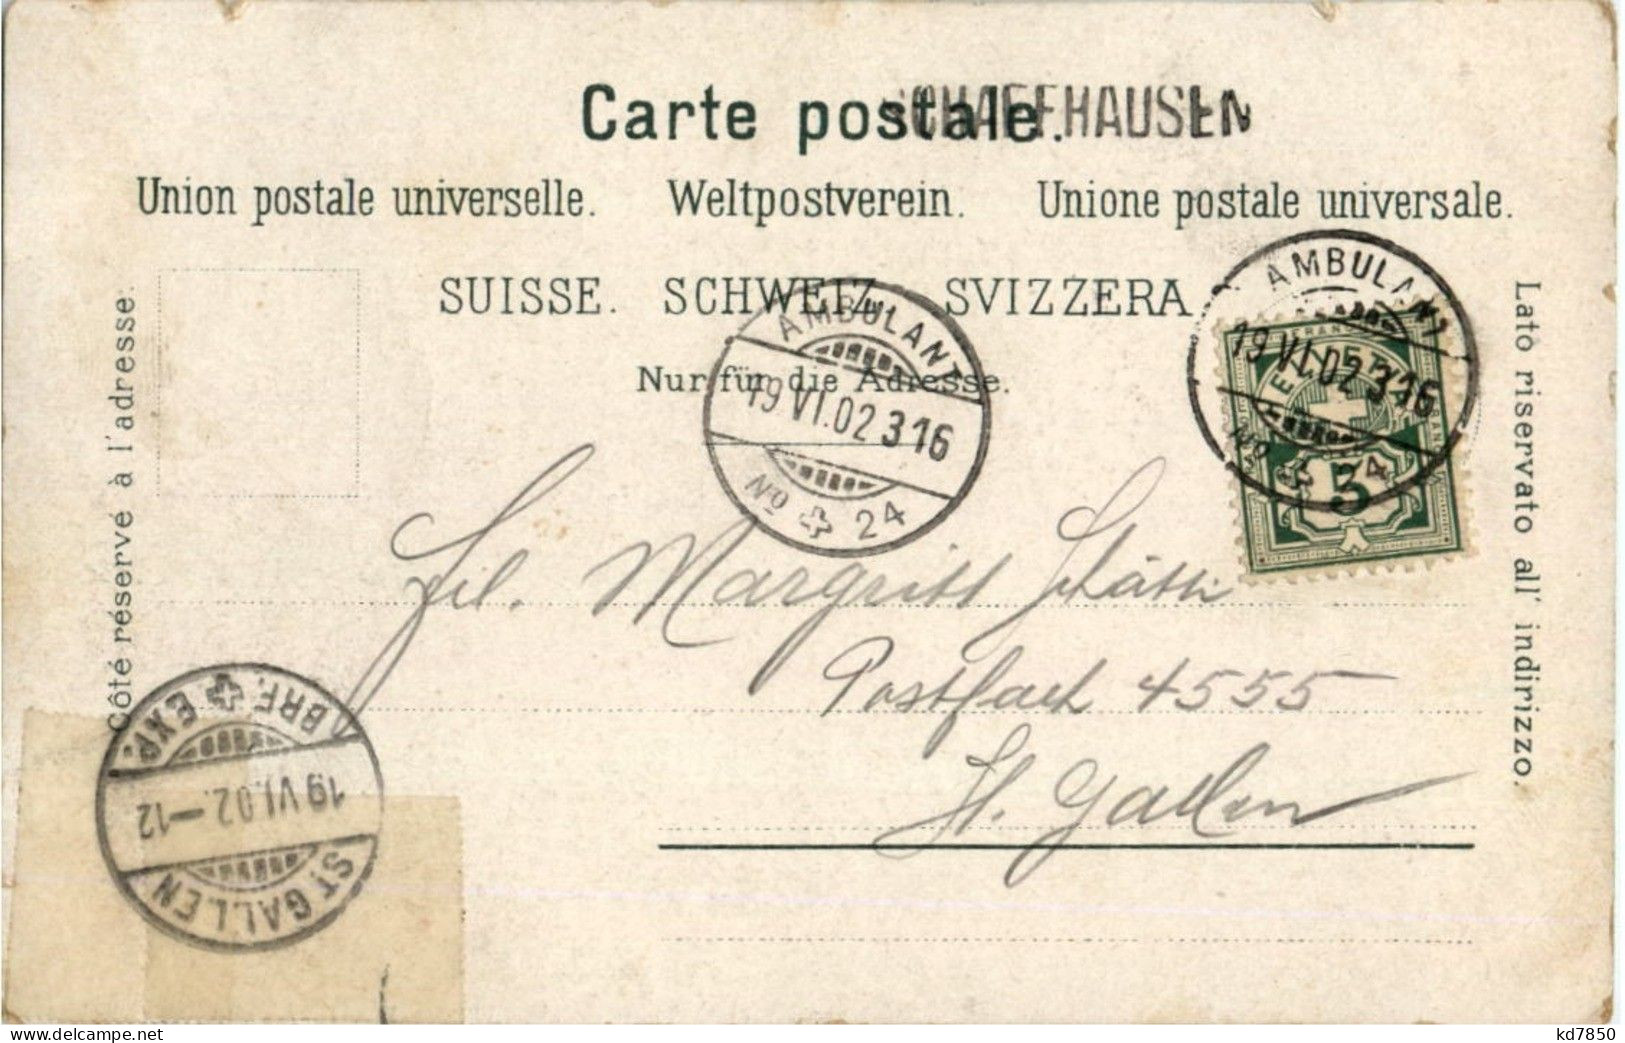 Carte postale.
SCHAFFHAUSEN
Union postale universelle. Weltpostverein. Unione postale universale.
SUISSE. SCHWEIZ. SVIZZERA
Nur für die Adresse.
Côté réservé à l'adresse.
Lato riservato all' indirizzo.
AMBULANT
19 VI.02 316
No 24
AMBULANT
19 VI.02 316
No 24
5
Frl. Margritt
Postfach 4555
St. Gallen
BRF. EXP.
19 VI.02.-12
ST. GALLEN
https://www.delcampe.net
kd7850